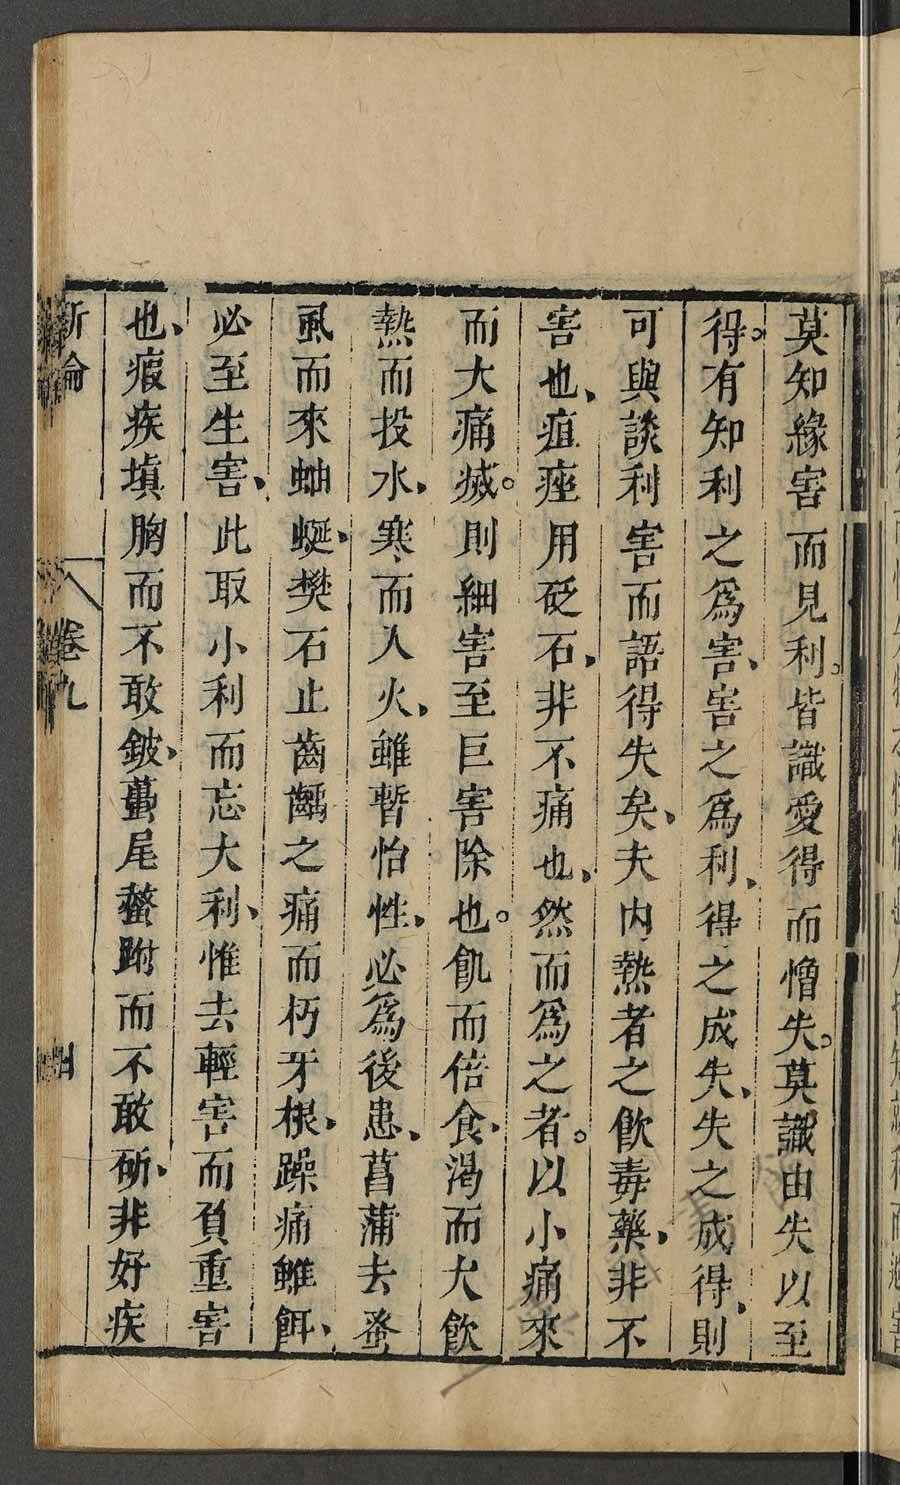 莫知緣害而見利。皆識愛得而憎失。莫識由失以至
得。有知利之爲害、害之爲利、得之成失、失之成得、則
可與談利害而語得失矣、夫內熱者之飲毒藥、非不
害也、疽痤用砭石、非不痛也、然而爲之者。以小痛來
而大痛滅。則細害至巨害除也。飢而倍食、渴而大飲
熱而投水、寒而入火、雖暫怡性、必爲後患、菖蒲去蚤
虱而來蚰蜒、樊石止齒齲之痛而朽牙根、躁痛雖餌、
必至生害、此取小利而忘大利、惟去輕害而負重害
也、瘕疾填胸而不敢鈹、蠆尾螫跗而不敢斫、非好疾
新論
卷九
四